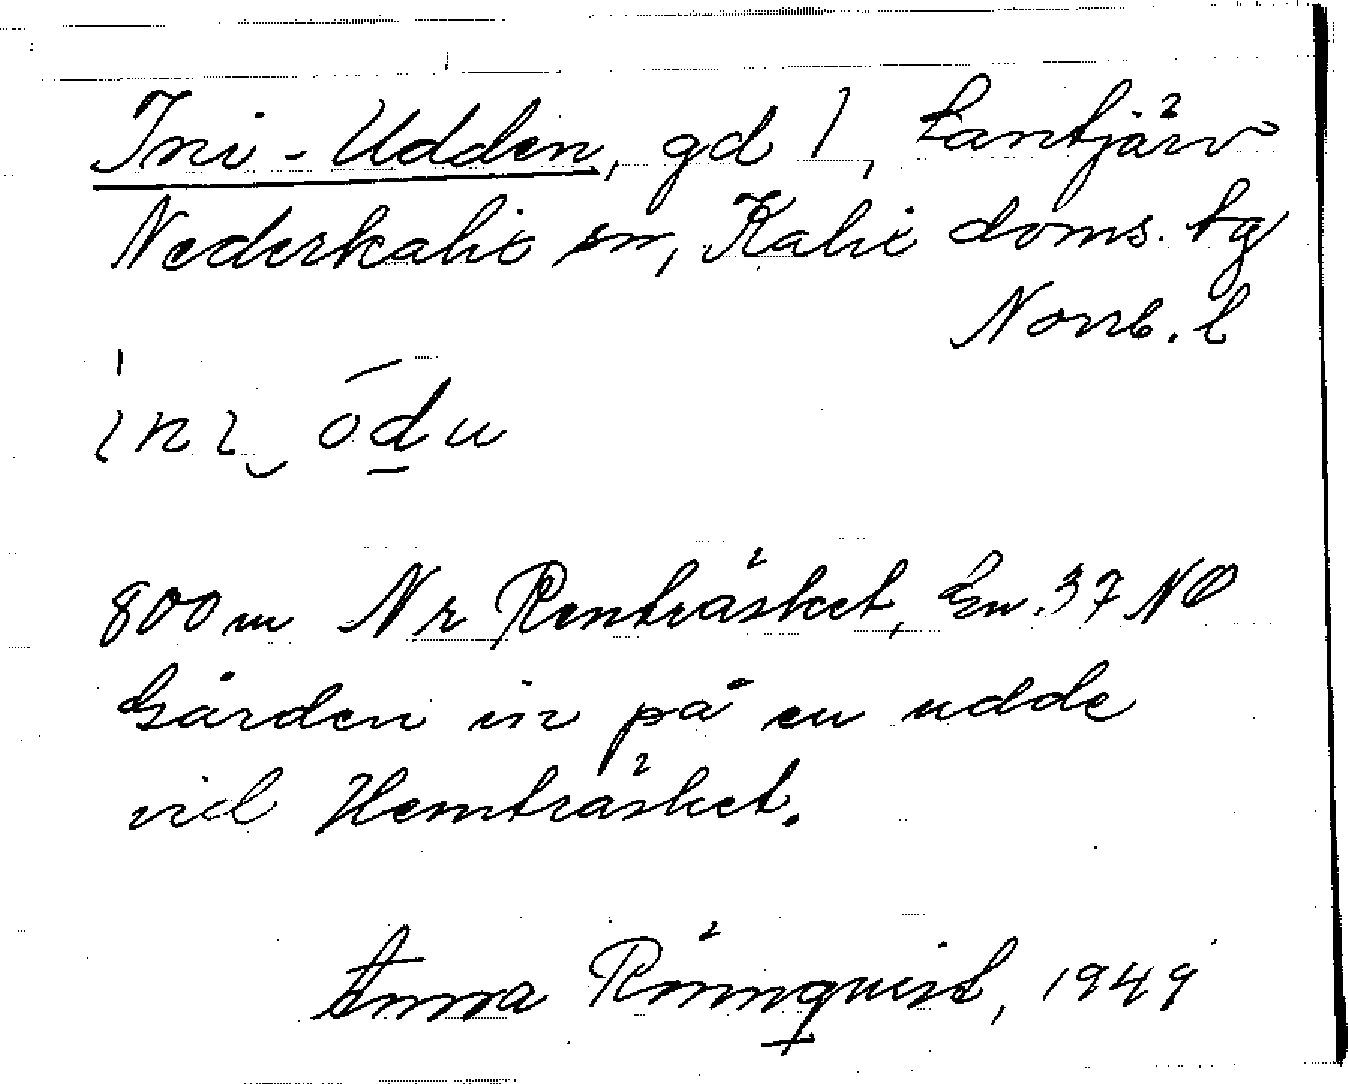 Ini-Udden, gd 1, Lantjärv
Nederkalix sn, Kalix doms. tg
Norrb. l
ini ̮ ōd̲u
800 m N r Renträsket, En. 37 NO
Gården in på en udde
vid Hemträsket.
Anna Rönnquist, 1949